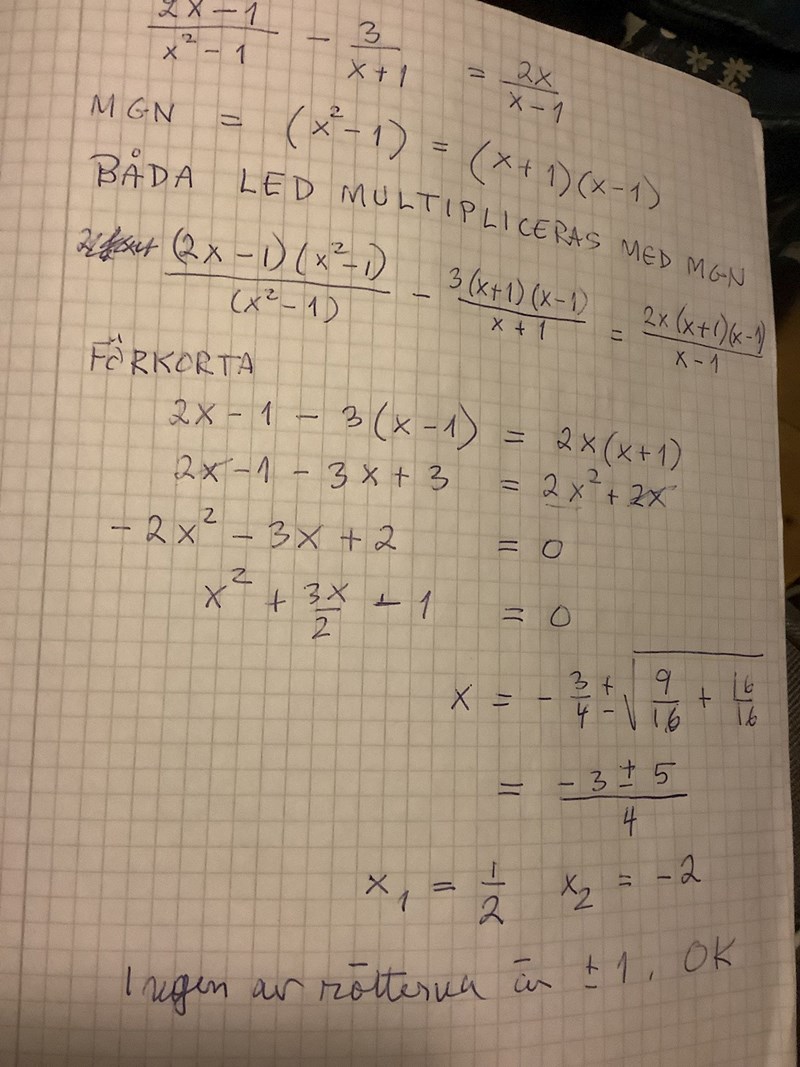 (2x-1)/(x²-1) - 3/(x+1) = 2x/(x-1)
MGN = (x²-1) = (x+1)(x-1)
BÅDA LED MULTIPLICERAS MED MGN
(2x-1)(x²-1)/(x²-1) - 3(x+1)(x-1)/(x+1) = 2x(x+1)(x-1)/(x-1)
FÖRKORTA
2x-1-3(x-1) = 2x(x+1)
2x-1-3x+3 = 2x²+2x
-2x²-3x+2 = 0
x²+3x/2-1 = 0
x = -3/4 ± √(9/16 + 16/16)
= (-3±5)/4
x₁ = 1/2 x₂ = -2
Ingen av rötterna är ±1. OK